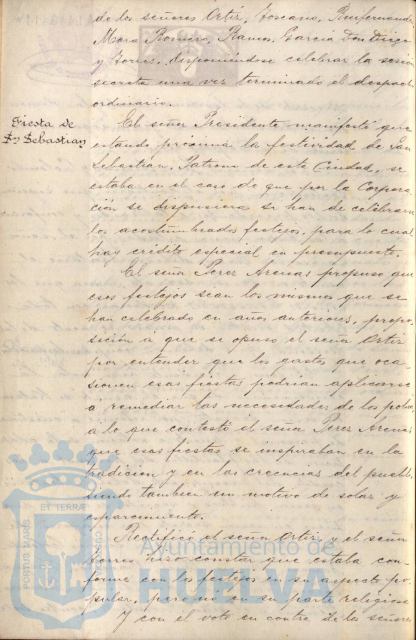 de los señores Ortiz, Toscano, Buifernand
Mora Romero, Ramos, García Don Diego
y Torres, disponiéndose celebrar la sesión
secreta una vez terminado el despach
ordinario.
Fiesta de
Sn Sebastian
El señor Presidente manifestó que
estando próxima la festividad de San
Sebastian, Patrono de esta Ciudad, se
estaba en el caso de que por la Corpora-
ción se dispusiera si han de celebrarse
los acostumbrados festejos, para lo cual
hay crédito especial en presupuesto.
El señor Perez Arenas propuso que
esos festejos sean los mismos que se
han celebrado en años anteriores, propo-
sición á que se opuso el señor Ortiz
por entender que los gastos que oca-
sionen esas fiestas podrian aplicarse
a remediar las necesidades de los pobres
a lo que contestó el señor Perez Arenas
que esas fiestas se inspiraban en la
tradicion y en las creencias del pueblo,
siendo tambien un motivo de solaz y
esparcimiento.
Rectificó el señor Ortiz, y el señor
Torres hizo constar que estaba con-
forme con los festejos en su aspecto po-
pular, pero nó en su parte religiosa
Y con el voto en contra de los señores
PORTUS MARIS
ET TERRAE
CUSTODIA
Ayuntamiento de
HUELVA